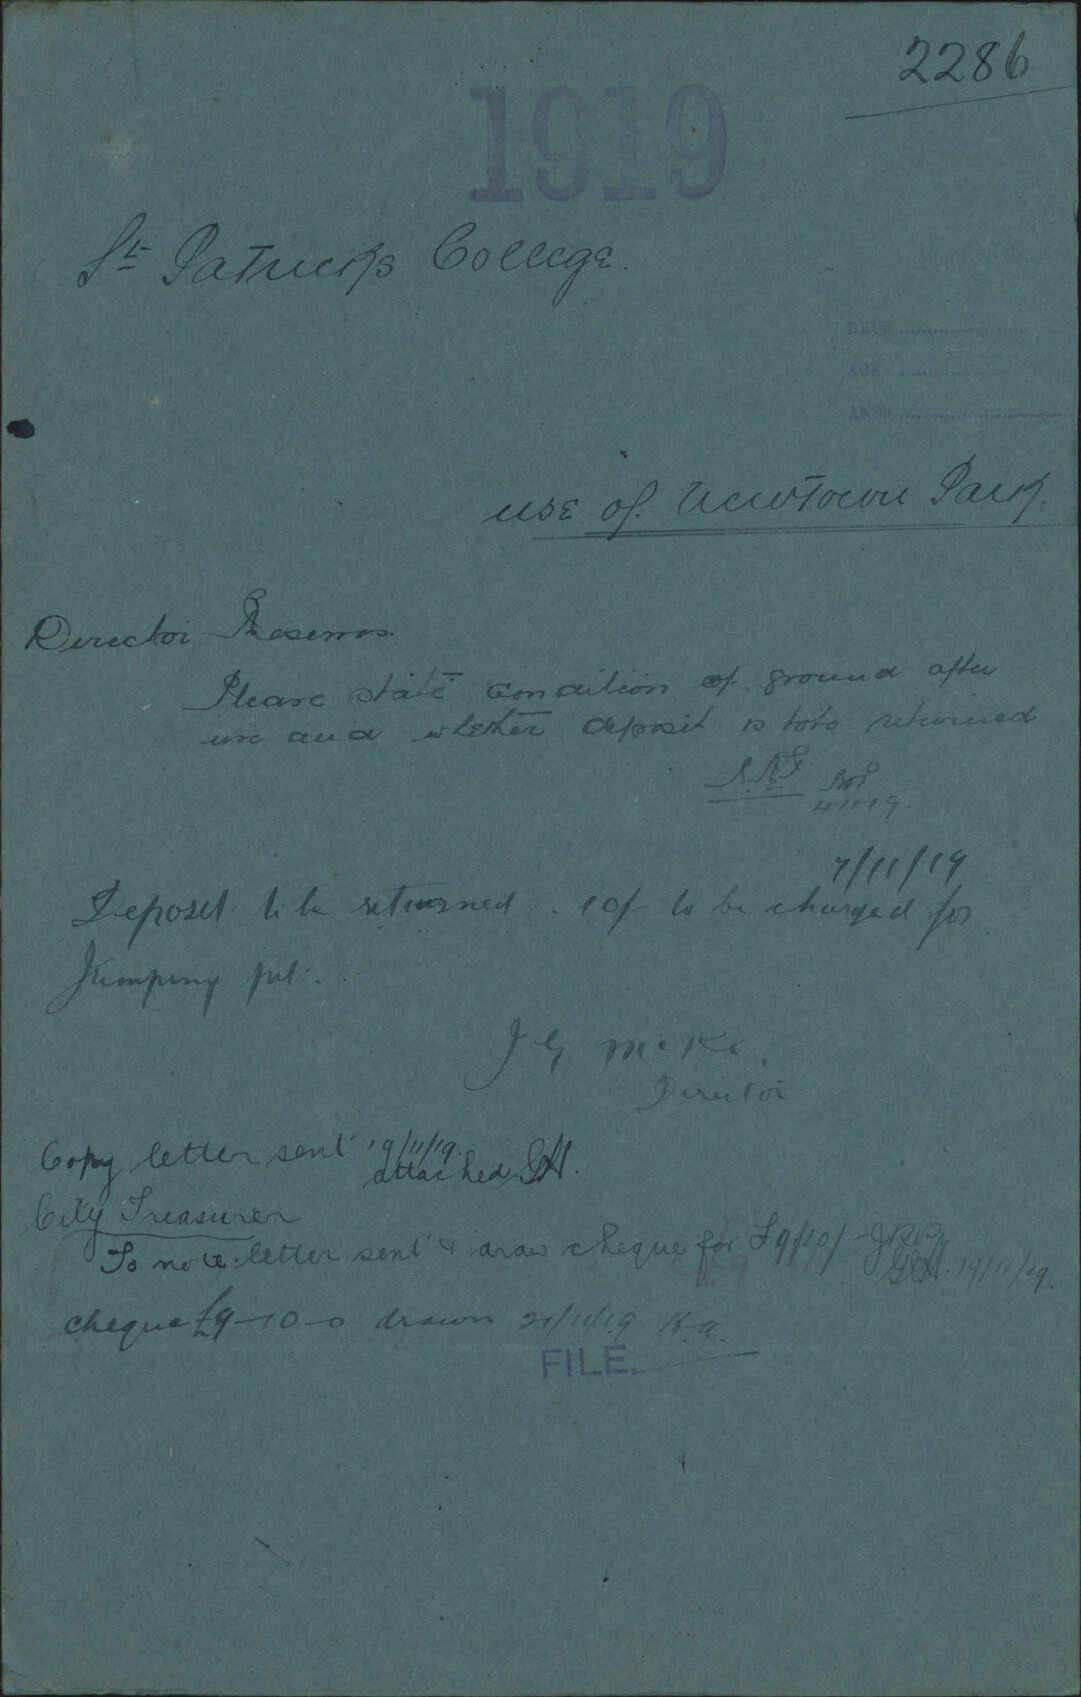 2286
1919
St Patricks College.
RECD
ACK
ANSD
use of Newtown Park.
Director Reserves.
Please state condition of ground after
use and whether deposit is to be returned
4.11.19.
7/11/19
Deposit to be returned. 10/ to be charged for
Jumping pit.
J G McKe.
Director
Copy letter sent 19/11/19.
attached GH.
City Treasurer
To note letter sent & draw cheque for £9/10/-
GH. 19/11/19.
cheque £9-10-0 drawn 21/11/19
FILE.